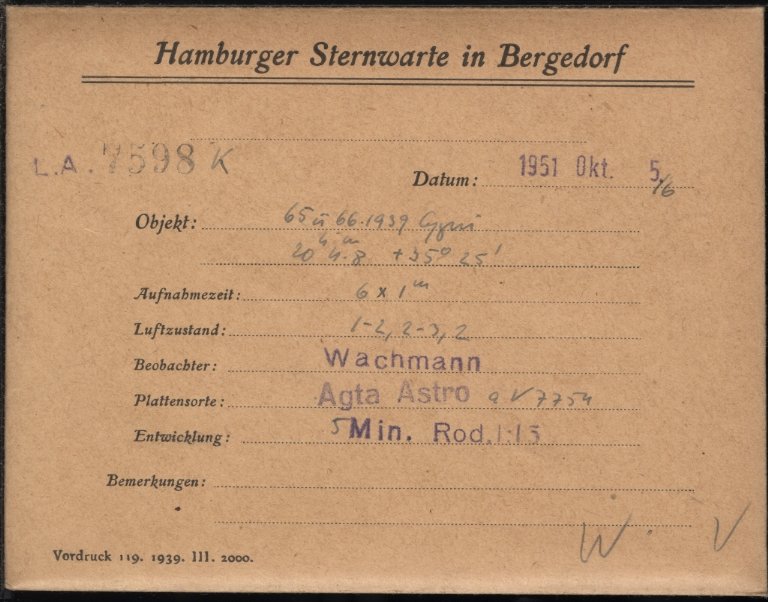 Hamburger Sternwarte in Bergedorf
L.A. 7598 K
Datum: 1951 Okt. 5/6
Objekt: 65 u 66.1939 Cygni
20ʰ 4.8ᵐ +35° 25'
Aufnahmezeit: 6 x 1ᵐ
Luftzustand: 1-2, 2-3, 2
Beobachter: Wachmann
Plattensorte: Agfa Astro a V 7754
Entwicklung: 5 Min. Rod. 1:15
Bemerkungen:
W. V
Vordruck 119. 1939. III. 2000.